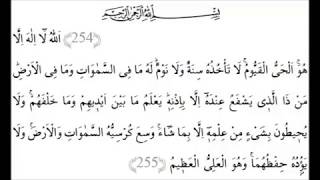 بِسْمِ اللّٰهِ الرَّحْمٰنِ الرَّحِيمِ
﴿254﴾ اَللّٰهُ لَٓا اِلٰهَ اِلَّا
هُوَۚ اَلْحَيُّ الْقَيُّومُۚ لَا تَأْخُذُهُ سِنَةٌ وَلَا نَوْمٌۜ لَهُ مَا فِي السَّمٰوَاتِ وَمَا فِي الْاَرْضِۜ
مَنْ ذَا الَّذ۪ي يَشْفَعُ عِنْدَهُٓ اِلَّا بِاِذْنِه۪ۜ يَعْلَمُ مَا بَيْنَ اَيْد۪يهِمْ وَمَا خَلْفَهُمْۚ وَلَا
يُح۪يطُونَ بِشَيْءٍ مِنْ عِلْمِه۪ٓ اِلَّا بِمَا شَٓاءَۚ وَسِعَ كُرْسِيُّهُ السَّمٰوَاتِ وَالْاَرْضَۚ وَلَا
يَؤُ۫دُهُ حِفْظُهُمَاۚ وَهُوَ الْعَلِيُّ الْعَظ۪يمُ ﴿255﴾